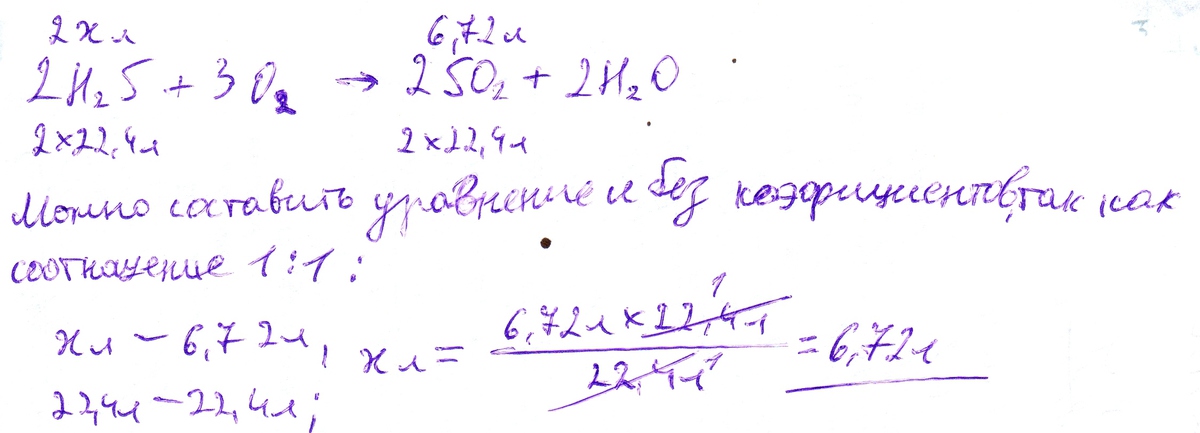 2х л 6,72л
2H₂S + 3O₂ → 2SO₂ + 2H₂O
2×22,4л 2×22,4л
Можно составить уравнение и без коэфициентов,так как
соотнашение 1:1:
хл – 6,72л, хл = 6,72л×22,4л 1 / 22,4л 1 = 6,72л
22,4л – 22,4л;